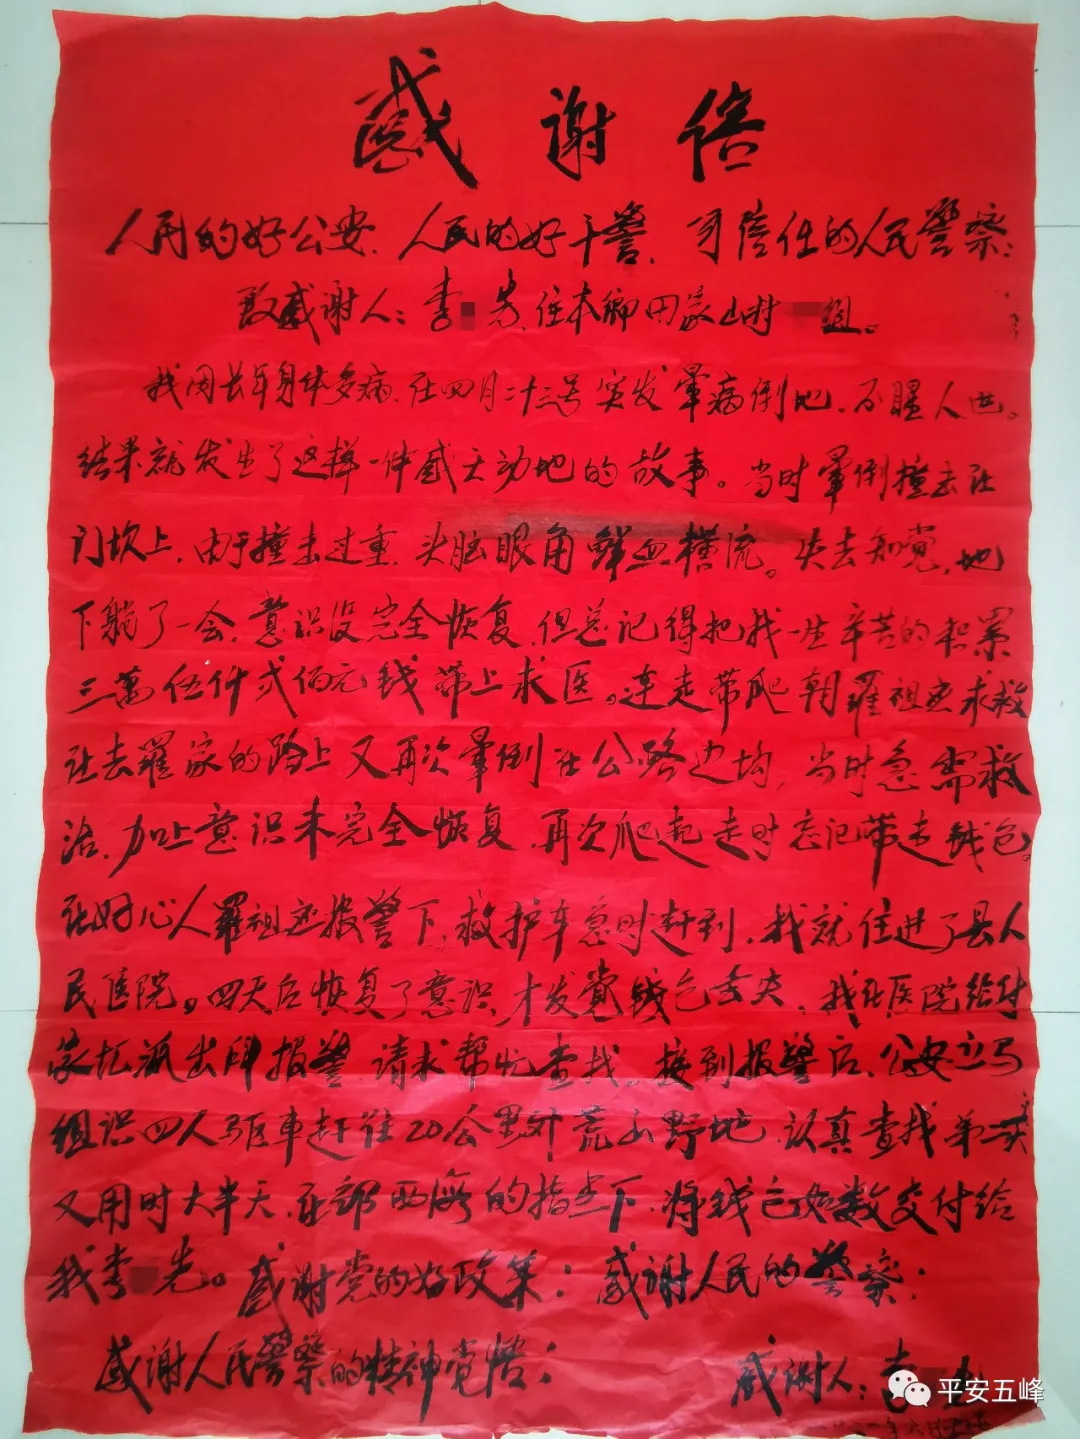 感谢信
人民的好公安、人民的好干警、可信任的人民警察：
致感谢人：李 先，住本乡田家山村 组。
我因长年身体多病，在四月二十三号突发晕病倒地，不醒人世。
结果就发生了这样一件感天动地的故事。当时晕倒撞击在
门坎上，由于撞击过重，头脑眼角鲜血横流。失去知觉，地
下躺了一会，意识没完全恢复，但总记得把我一生辛苦的积累
三萬伍仟式佰元钱带上求医。连走带爬朝羅祖 求救
在去羅家的路上又再次晕倒在公路边沟，当时急需救
治，加上意识未完全恢复，再次爬起走时忘记带走钱包。
在好心人羅祖 报警下，救护车急时赶到，我就住进了县人
民医院。四天后恢复了意识，才发觉钱包丢失，我在医院给付
家 派出所报警，请求帮忙查找。接到报警后，公安立马
组识四人驱车赶往20公里外荒山野地，认真查找第一次
又用时大半天，在 的指 下，将钱包如数交付给
我李 先。感谢党的好政策：感谢人民的警察：
感谢人民警察的精神觉悟：
感谢人：李
平安五峰